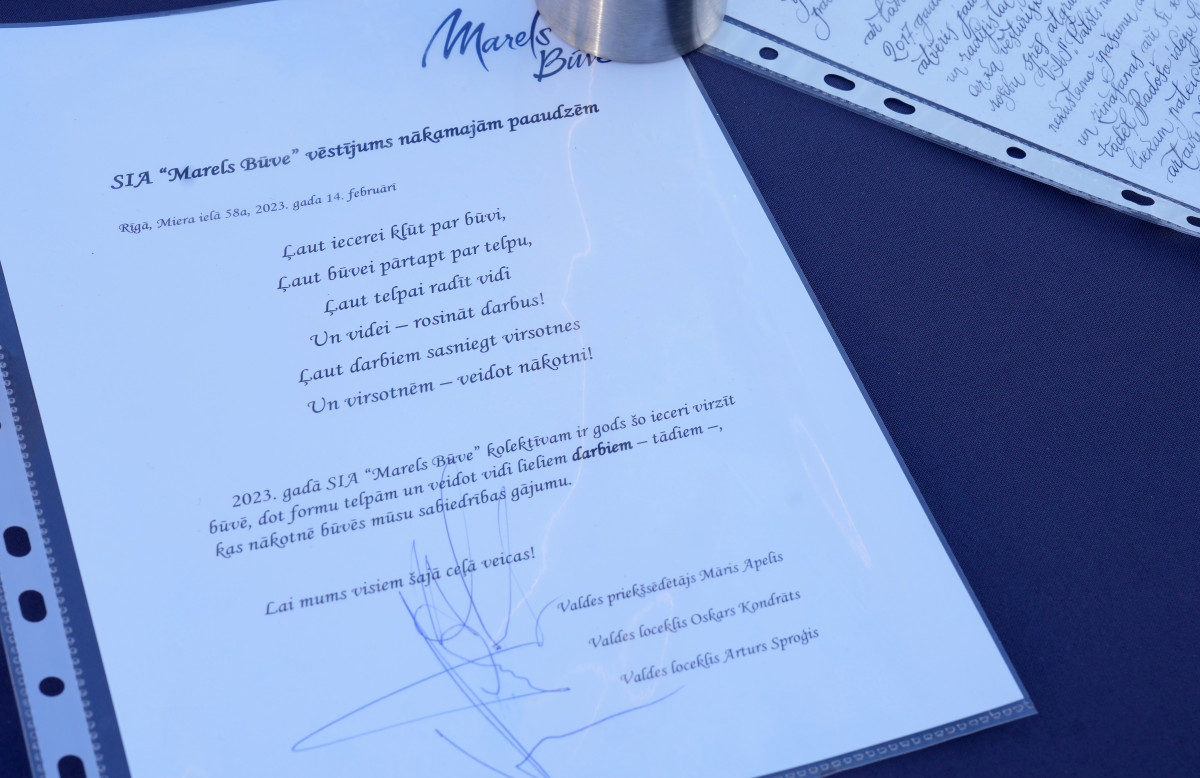 Marels
Būve
SIA “Marels Būve” vēstījums nākamajām paaudzēm
Rīgā, Miera ielā 58a, 2023. gada 14. februārī
Ļaut iecerei kļūt par būvi,
Ļaut būvei pārtapt par telpu,
Ļaut telpai radīt vidi
Un videi – rosināt darbus!
Ļaut darbiem sasniegt virsotnes
Un virsotnēm – veidot nākotni!
2023. gadā SIA “Marels Būve” kolektīvam ir gods šo ieceri virzīt
būvē, dot formu telpām un veidot vidi lieliem darbiem – tādiem –,
kas nākotnē būvēs mūsu sabiedrības gājumu.
Lai mums visiem šajā ceļā veicas!
Valdes priekšsēdētājs Māris Apelis
Valdes loceklis Oskars Kondrāts
Valdes loceklis Arturs Sproģis
2017. gada
atvēris
un radījis
vēsturisk
spēj
nekustamā īpašumu
un zināšanas arī
tādēļ
liekam pateic